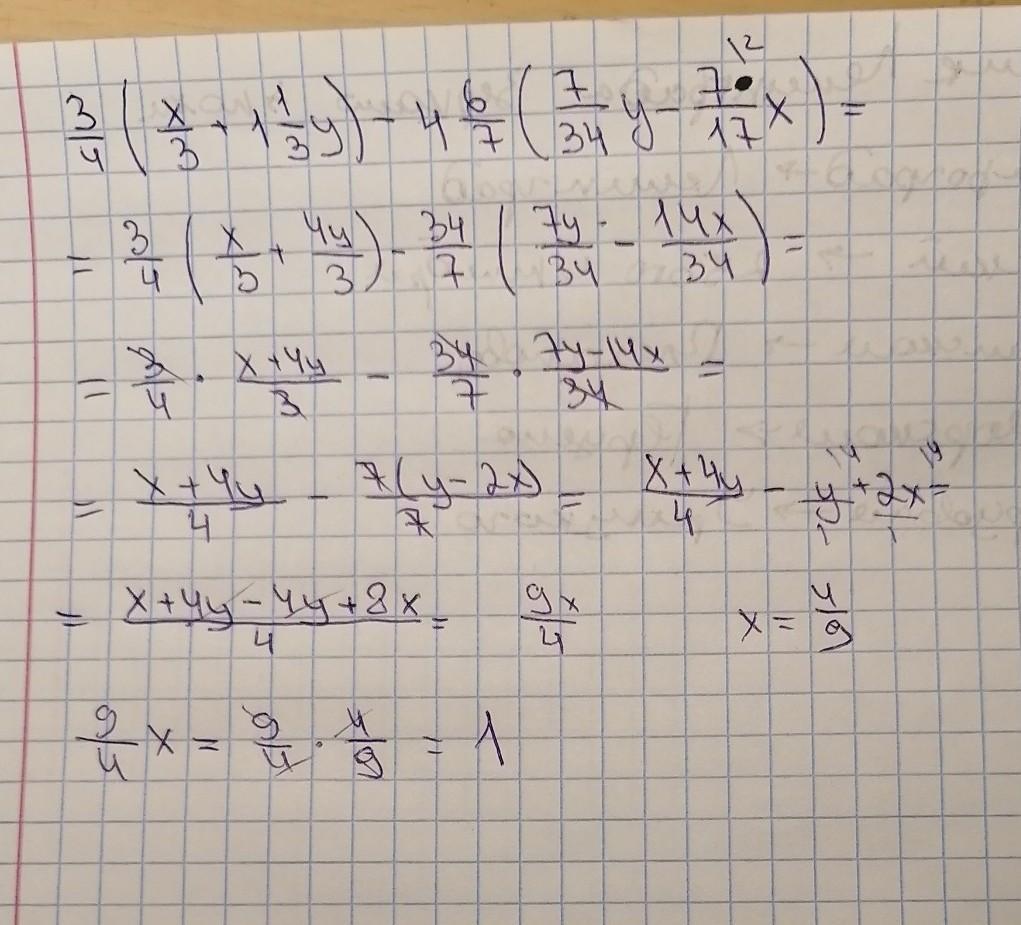 3/4 (x/3 + 1 1/3 y) - 4 6/7 (7/34 y - 7/17 \2 x) =
= 3/4 (x/3 + 4y/3) - 34/7 (7y/34 - 14x/34) =
= 3/4 · (x+4y)/3 - 34/7 · (7y-14x)/34 =
= (x+4y)/4 - 7(y-2x)/7 = (x+4y)/4 - y/1 \4 + 2x/1 \4 =
= (x+4y-4y+8x)/4 = 9x/4 x = 4/9
9/4 x = 9/4 · 4/9 = 1